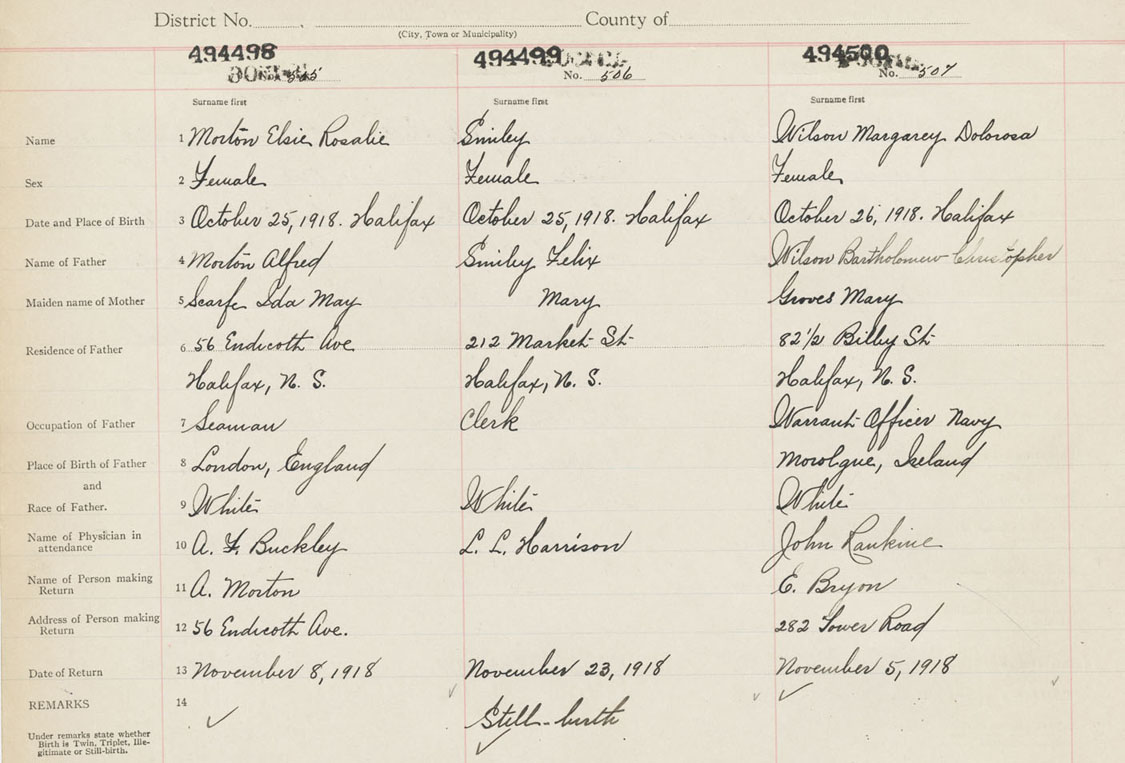 District No. County of
(City, Town or Municipality)
494498 494499 494500
505 No. 506 No. 507
Surname first Surname first Surname first
Name 1 Morton Elsie Rosalie Smiley Wilson Margarey Dolorosa
Sex 2 Female Female Female
Date and Place of Birth 3 October 25, 1918. Halifax October 25, 1918. Halifax October 26, 1918. Halifax
Name of Father 4 Morton Alfred Smiley Felix Wilson Bartholomew Christopher
Maiden name of Mother 5 Scarfe Ida May Mary Groves Mary
Residence of Father 6 56 Endicoth Ave 212 Market St 82 1/2 Bilby St
Halifax, N. S. Halifax, N. S. Halifax, N. S.
Occupation of Father 7 Seaman Clerk Warrant Officer Navy
Place of Birth of Father 8 London, England Ireland
and
Race of Father. 9 White White White
Name of Physician in 10 A. F. Buckley L. L. Harrison John Rankine
attendance
Name of Person making 11 A. Morton E. Bryon
Return
Address of Person making 12 56 Endicoth Ave. 282 Tower Road
Return
Date of Return 13 November 8, 1918 November 23, 1918 November 5, 1918
REMARKS 14 Still-birth
Under remarks state whether
Birth is Twin, Triplet, Ille-
gitimate or Still-birth.